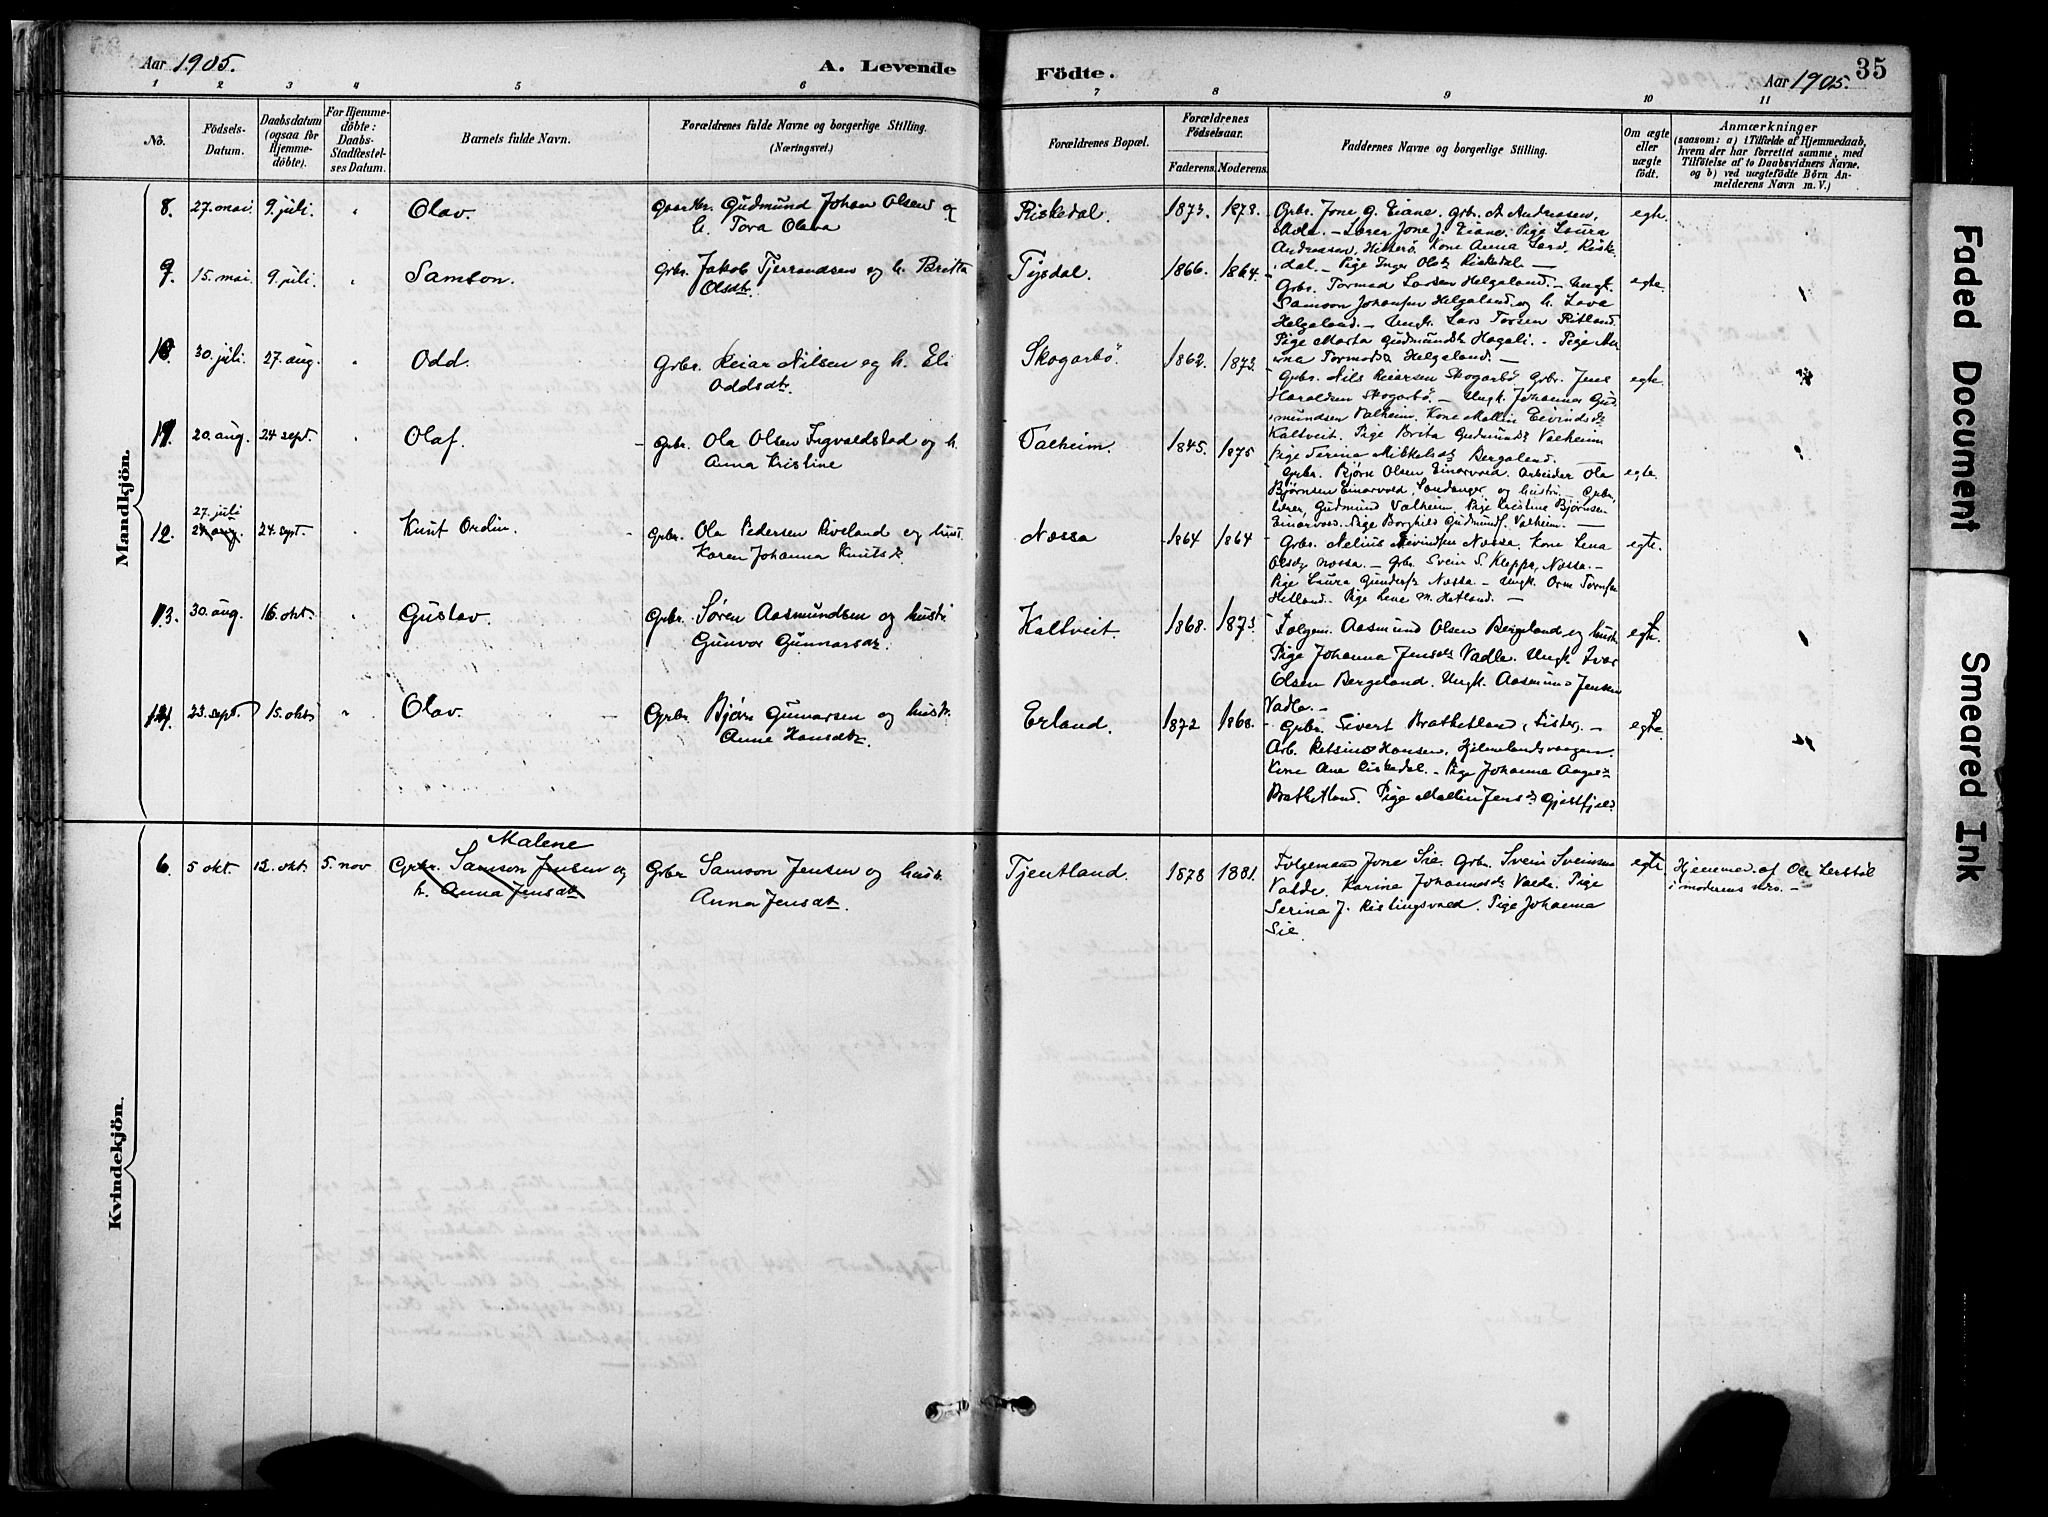 Aar 1905.
A. Levende
Födte.
Aar 1905.
35
1 2 3 4 5 6 7 8 9 10 11
No.
Födsels-Datum.
Daabsdatum (ogsaa for Hjemmedöbte).
For Hjemmedöbte: Daabs-Stadfæstelses Datum.
Barnets fulde Navn.
Forældrenes fulde Navne og borgerlige Stilling.
(Næringsvei.)
Forældrenes Bopæl.
Forældrenes Födselsaar.
Faderens. Moderens.
Faddernes Navne og borgerlige Stilling.
Om ægte eller uægte födt.
Anmærkninger
(saasom: a) i Tilfælde af Hjemmedaab, hvem der har forrettet samme, med Tilföielse af to Daabsvidners Navne, og b) ved uægtefödte Börn Anmelderens Navn m. V.)
Mandkjön.
8. 27. mai. 9. juli. " Olav. Gaardbr. Gudmund Johan Olsen og
h. Tora Olava
Riskedal. 1873. 1878.
Grbr. Jone G. Eiane. Grb. A. Andreasen,
Lærer Jone J. Eiane. Pige Laura
Andreasen, Hitterö. Kone Anna Lars. Riske-
dal. - Pige Inger Olsd. Riskedal. -
egte.
9. 15. mai. 9. juli. " Samson. Grbr. Jakob Tjerrandsen og h. Britta
Olsdtr.
Tysdal. 1866. 1864.
Grbr. Tormod Larsen Helgeland. - Ungk.
Samson Johansen Helgeland og h. Lava
Helgeland. - Ungk. Lars Torsen Ritland.
Pige Marta Gudmundsd. Hagali. - Pige An-
na Tormodsd. Helgeland. -
egte.
10. 30. juli. 27. aug. " Odd. Grbr. Reiar Nilsen og h. Eli
Oddsdtr.
Skogarbö 1862. 1873.
Grbr. Nils Reiarsen Skogarbö Grbr. Jens
Haraldsen Skogarbö. - Ungk. Johannes Gud-
mundsen Valheim. Kone Mallin Eivindsd.
Kaltveit. Pige Brita Gudmundsd. Valheim
Pige Serina Mikkelsd. Bergeland. -
egte.
11. 20. aug. 24 sept. " Olaf. Grbr. Ola Olsen Ingvaldstad og h.
Anna Kristine
Valheim. 1845. 1875
Grbr. Bjørn Olsen Einarvold. Arbeider Ola
Bjørnsen Einarvold, Sandanger og hustru. Grbr,
lærer, Gudmund Valheim, Pige Kristine Bjørnsen
Einarvold. Pige Borghild Gudmunds. Valheim. -
egte.
12. 27. juli 24. aug. 24. sept. " Knut Ordin. Grbr. Ola Pedersen Riveland og hust.
Karen Johanna Knutsd.
Næssa 1864 1864
Grbr. Nelius Eivindsen Næssa. Kone Lena
Olsd. Næssa. - Grbr. Svein S. Kleppa, Næssa. -
Pige Laura Gunders. Næssa. - Ungk. Orm Tormsen
Hetland. Pige Lene M. Hetland. -
egte.
13. 30. aug. 16. okt. " Gustav. Grbr. Søren Aasmundsen og hustr.
Gunvor Gunnarsdtr.
Kaltveit. 1868. 1873.
Folgem. Aasmund Olsen Bergeland og hustr.
Pige Johanna Jensd. Vadla. Ungk. Ivar
Olsen Bergeland. Ungk. Aasmund Jensen
Vadla. -
egte.
14. 23. sept. 15. okt. " Olav. Grbr. Bjørn Gunnarsen og hustr.
Anne Hansdtr.
Erland. 1872 1868.
Grbr. Sivert Brathetland, (Fister). -
Arb. Retsius Hansen, Hjelmelandsvaagen
Kone Ane Riskedal. - Pige Johanne Aages
Brathetland. Pige Mallin Jensd. Gjestfjeld
egte.
Kvindekjön.
6. 5 okt. 12. okt. 5. nov Malene
Grbr. Samson Jensen og
h. Anna Jensdtr.
Grbr Samson Jensen og hust.
Anna Jensdtr.
Tjentland. 1878 1881.
Folgemand Jone Sie Grbr. Svein Sveinsen
Valde. Karine Johannesd. Valde. Pige
Serina J. Rislingsvold. Pige Johanna
Sie.
egte
Hjemmed. af Ole Lerstøl
i moderens nærv. -
Faded Document
Smeared Ink